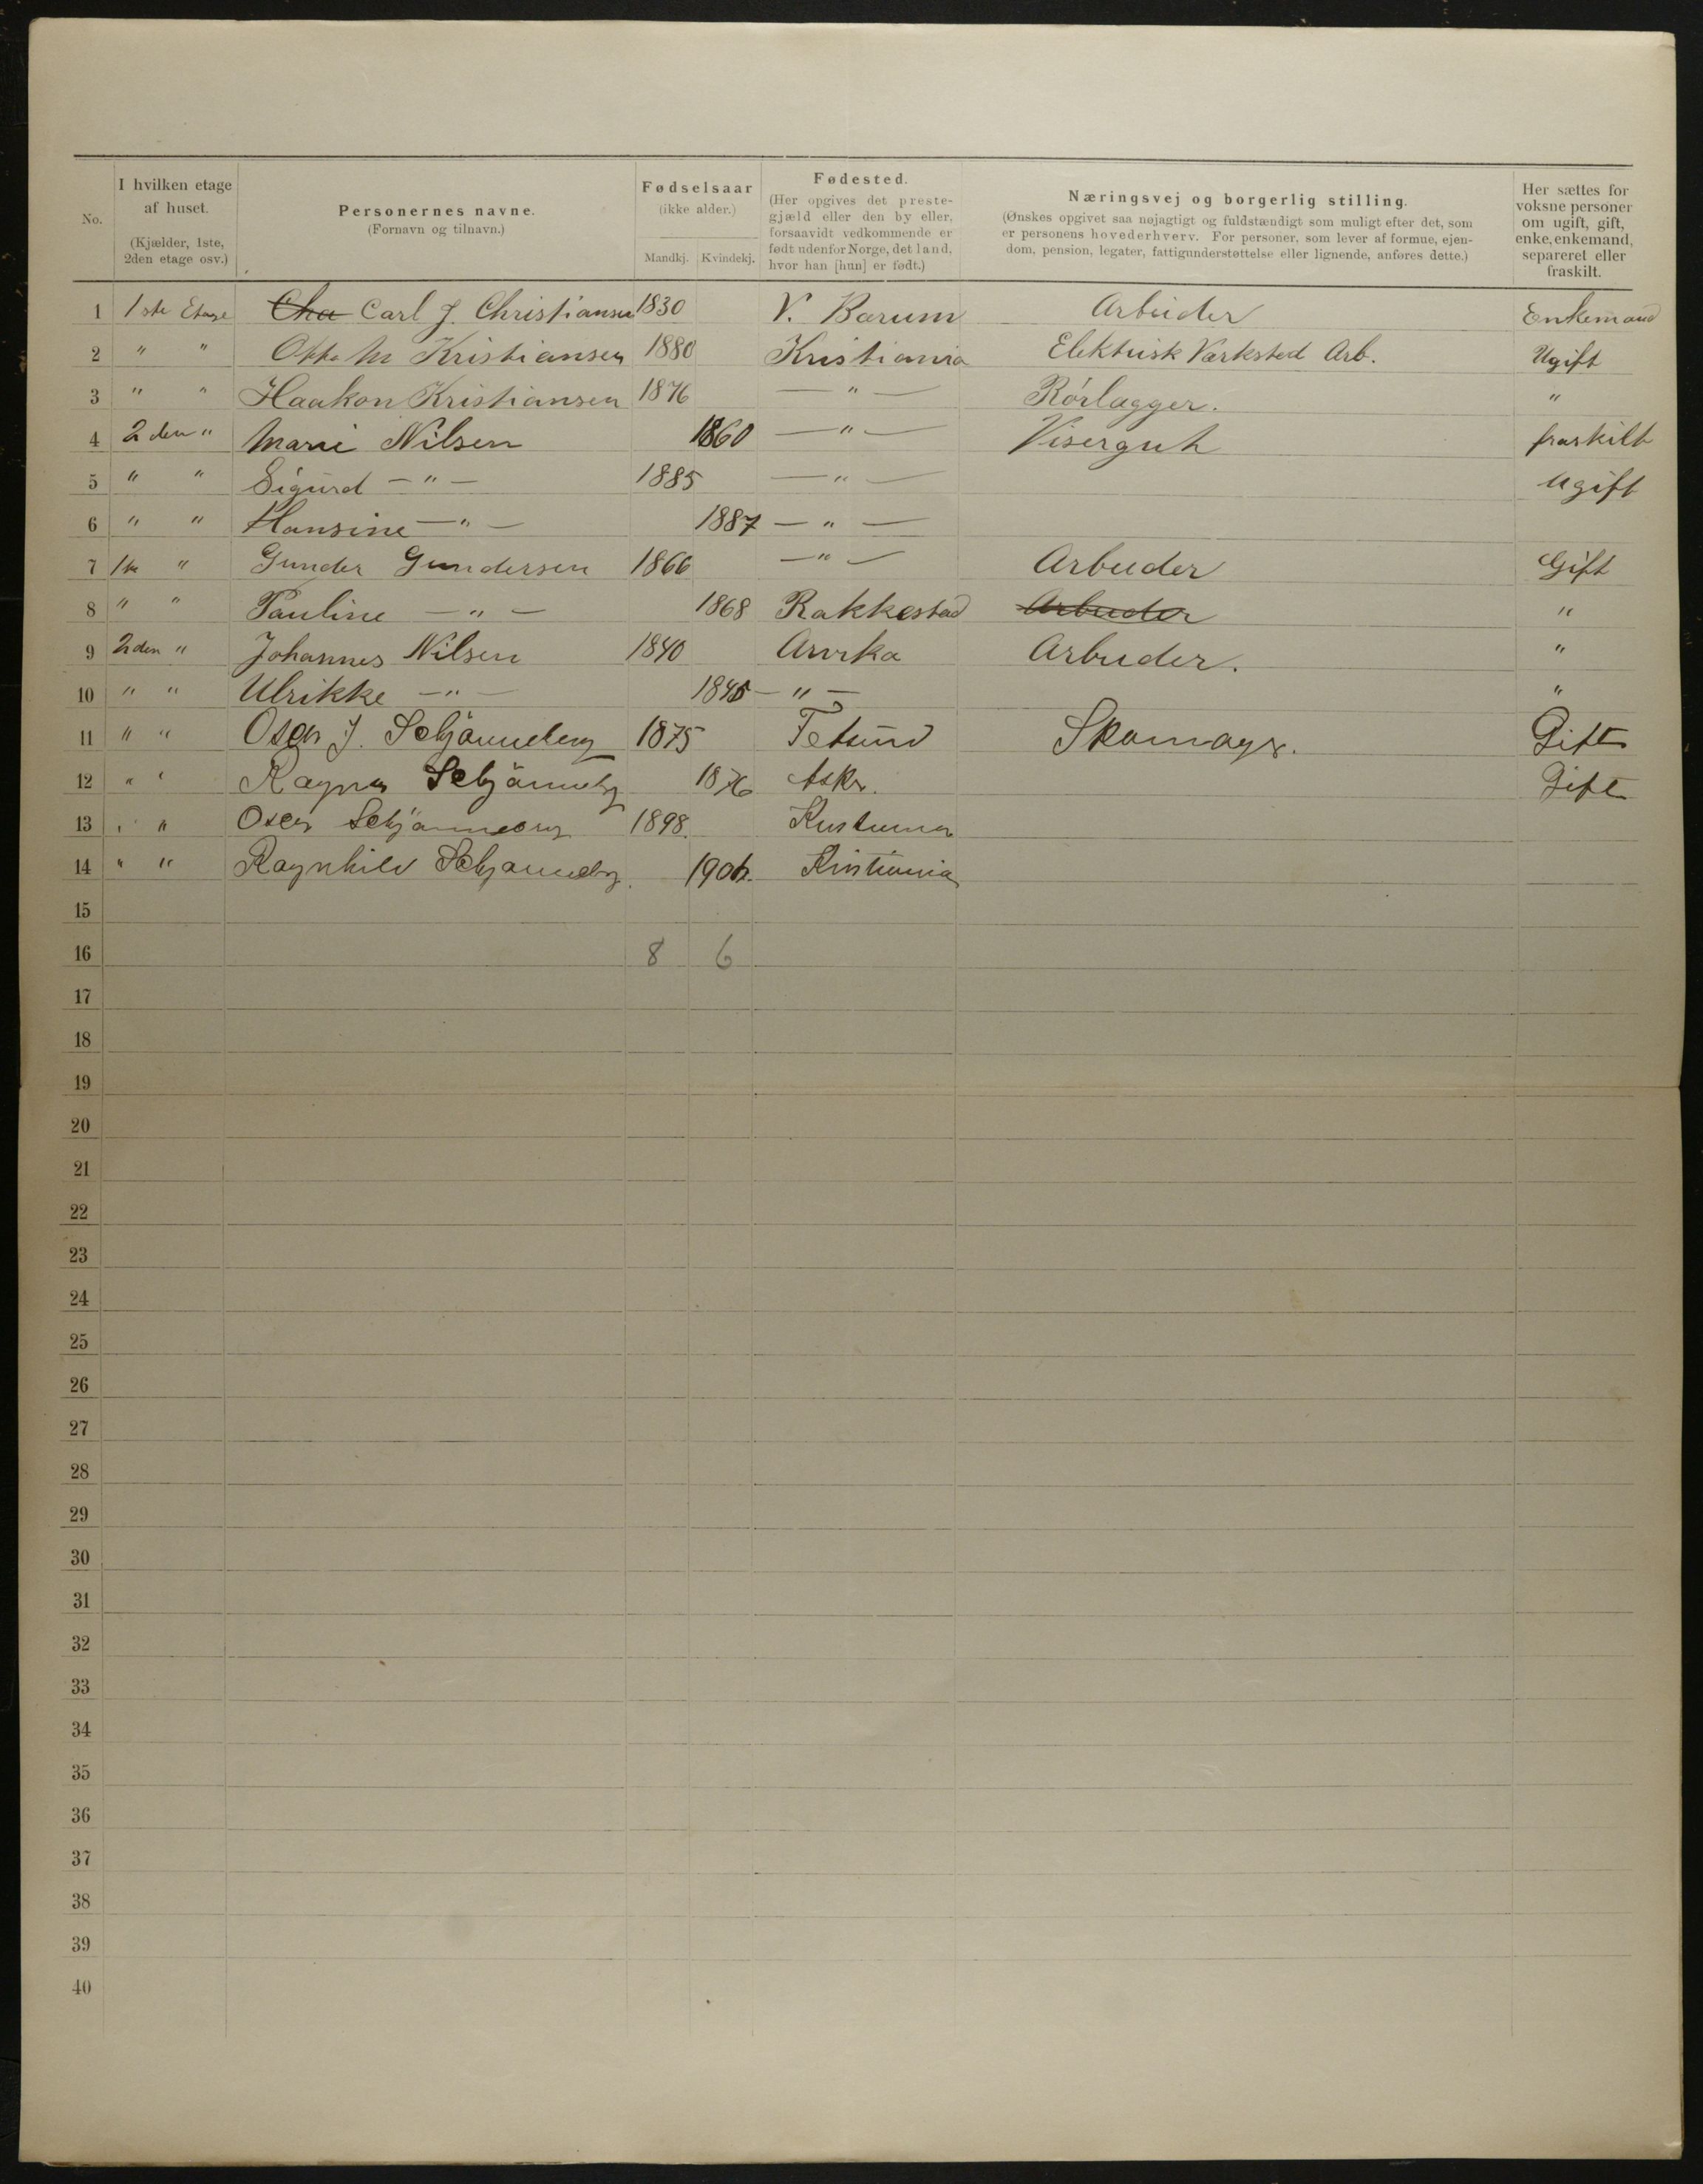 No.
I hvilken etage af huset. (Kjælder, 1ste, 2den etage osv.)
Personernes navne. (Fornavn og tilnavn.)
Fødselsaar (ikke alder.) Mandkj. Kvindekj.
Fødested. (Her opgives det prestegjæld eller den by eller, forsaavidt vedkommende er født udenfor Norge, det land, hvor han [hun] er født.)
Næringsvej og borgerlig stilling. (Ønskes opgivet saa nøjagtigt og fuldstændigt som muligt efter det, som er personens hovederhverv. For personer, som lever af formue, ejendom, pension, legater, fattigunderstøttelse eller lignende, anføres dette.)
Her sættes for voksne personer om ugift, gift, enke, enkemand, separeret eller fraskilt.
1 1ste Etage Cha Carl J. Christiansen 1830 V. Barum Arbeider Enkemand
2 " " Otto M Kristiansen 1880 Kristiania Elektrisk Værksted Arb. Ugift
3 " " Haakon Kristiansen 1876 — " — Rörlægger. "
4 2den " Marie Nilsen 1860 — " — Visergut fraskilt
5 " " Sigurd — " — 1885 — " — Ugift
6 " " Hansine — " — 1887 — " —
7 1ste " Gunder Gundersen 1866 — " — Arbeider Gift
8 " " Pauline — " — 1868 Rakkestad Arbeider "
9 2den " Johannes Nilsen 1840 Arvika Arbeider. "
10 " " Ulrikke — " — 1845 — " — "
11 " " Oscar J. Schjönneberg 1875 Fetsund Skomager. Gift
12 " " Ragna Schjönneberg 1876 Asker. Gift
13 " " Oscar Schjönneberg 1898. Kristiania
14 " " Ragnhild Schjönneberg. Kristiania
15
16 8 6
17
18
19
20
21
22
23
24
25
26
27
28
29
30
31
32
33
34
35
36
37
38
39
40